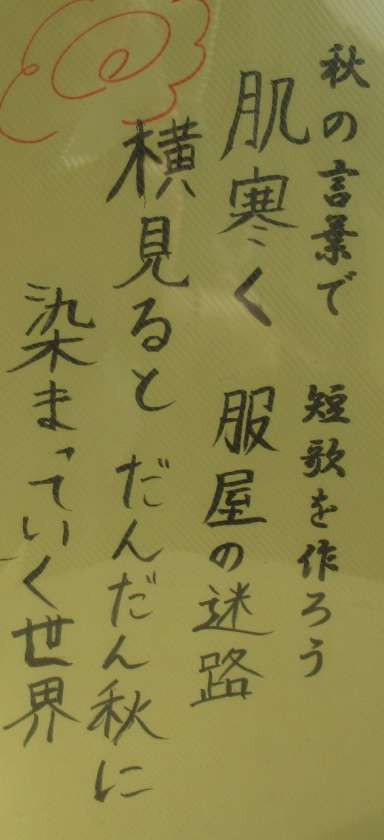 秋の言葉で 短歌を作ろう
肌寒く 服屋の迷路
横見ると だんだん秋に
染まっていく世界